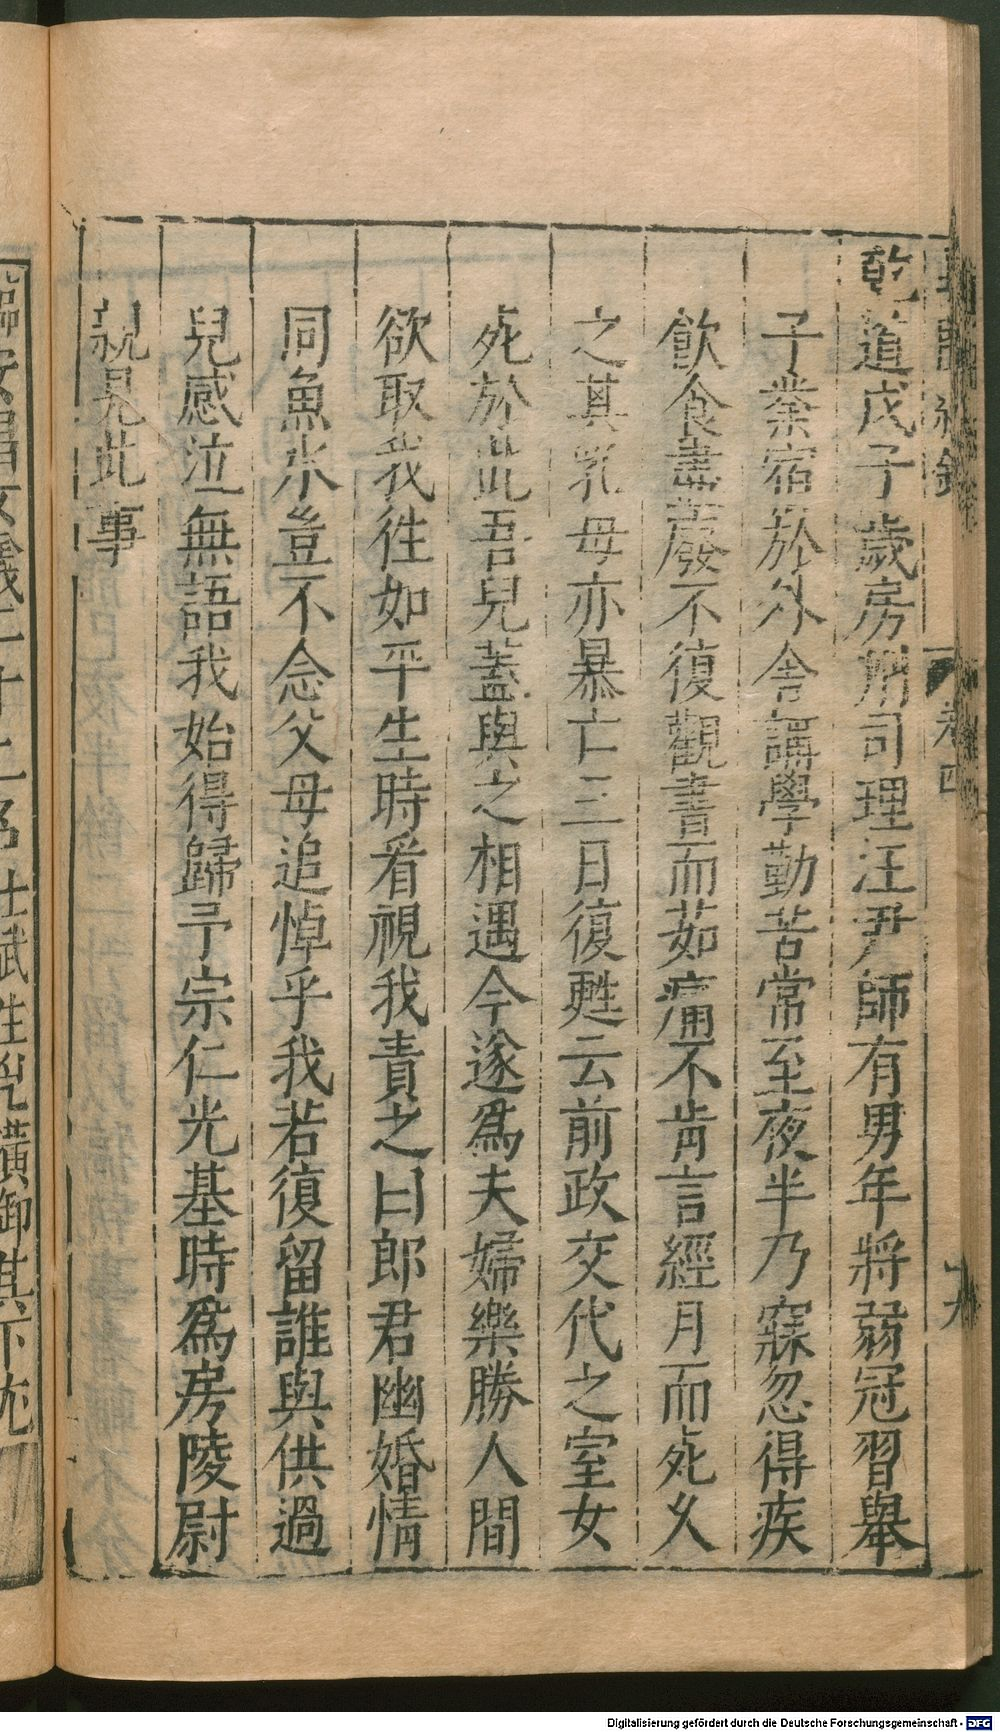 乾道戊子歲房州司理汪尹師有男年將弱冠習舉
子業宿於外舍講學勤苦常至夜半乃寐忽得疾
飲食盡廢不復觀書而茹痛不肯言經月而死久
之其乳母亦暴亡三日復甦云前政交代之室女
死於此吾兒蓋與之相遇今遂爲夫婦樂勝人間
欲取我徃如平生時看視我責之曰郎君幽婚情
同魚水豈不念父母追悼乎我若復留誰與供過
兒感泣無語我始得歸予宗仁光基時爲房陵尉
親見此事
卷四
Digitalisierung gefördert durch die Deutsche Forschungsgemeinschaft - DFG